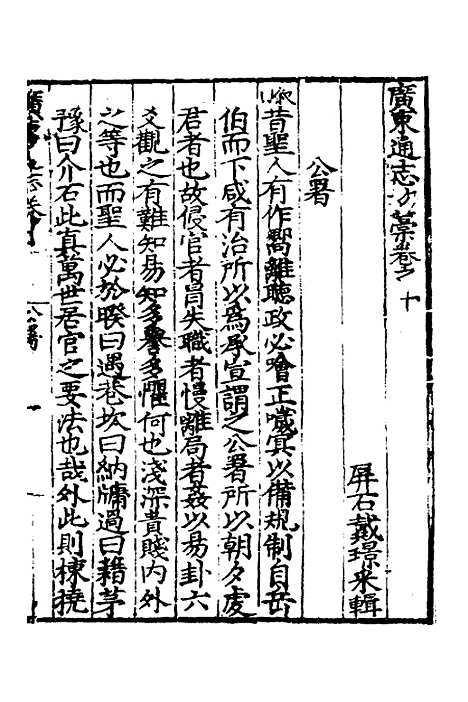 廣東通志初藁卷之十
屏石戴璟采輯
公署
昔聖人有作嚮離聽政必噲正噦冥以備規制自岳
伯而下咸有治所以為承宣謂之公署所以朝夕處
君者也故侵官者冒失職者慢離局者姦以易卦六
爻觀之有難知易知多譽多懼何也淺深貴賤內外
之等也而聖人必於睽曰遇巷坎曰納牖過曰藉茅
豫曰介石此真萬世居官之要法也哉外此則棟撓